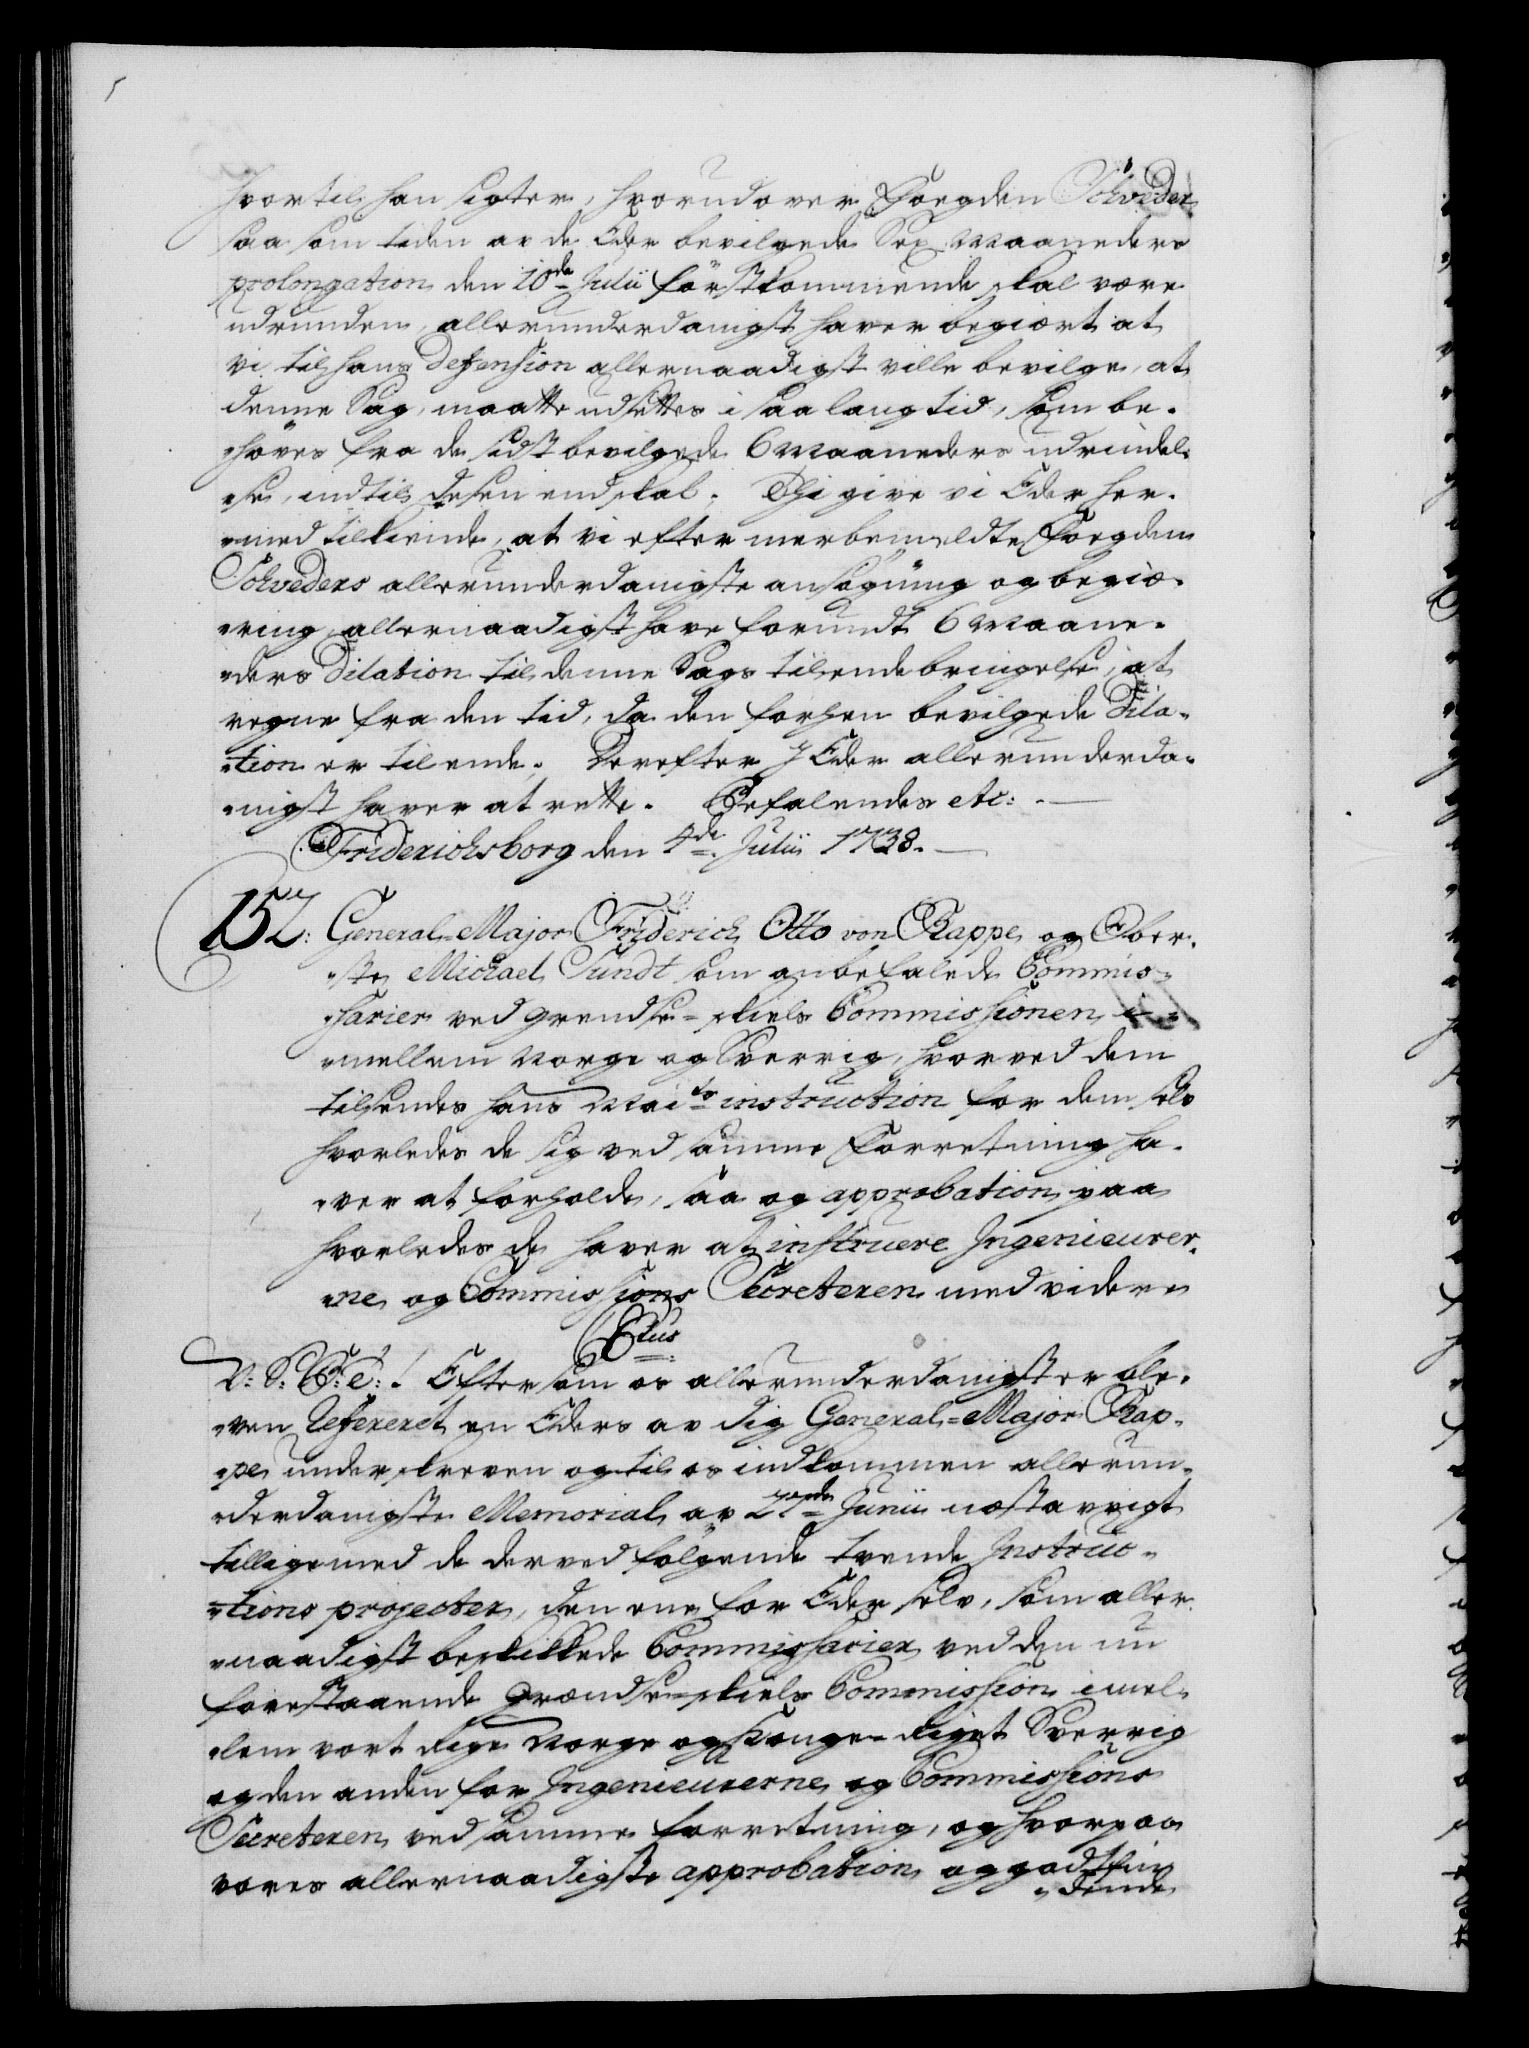 hvortil han sigter, hvorudover Jørgden Schweder
saa som tiden av de Eder bevilgede Sex Maaneders
prolongation den 10de Julii förstkommende skal være
udrunden, allerunderdanigst haver begiært at
vi til hans Defension allernaadigst ville bevilge, at
denne Sag, maatte udsættes i saa lang tid, som be-
höves fra de sidst bevilgede 6 Maaneders udrindel-
se, indtil desen end skal. Thi give vi Eder her-
med tilkiende, at vi efter merbemeldte Jørgden
Schweders allerunderdanigste ansögning og begiæ-
ring, allernaadigst have forundt 6 Maane-
ders Dilation til denne Sags tilendebringelse, at
regne fra den tid, da den forhen bevilgede Dila-
tion er til ende. Derefter I Eder allerunderda-
nigst haver at rette. Befalendes etc:
Friderichsborg den 4de Julii 1738.
152: General-Major Friderich Otto von Rappe og Ober-
ste Michael Sundt som anbefalede Commis-
sarier ved Grendse-skiels Commissionen i-
mellem Norge og Sverrig, hvorved dem
tilsendes hans Maits instruction for dem selv
hvorledes de sig ved samme Forretning ha-
ver at forholde, saa og approbation paa
hvorledes de haver at instruere Ingenieurer-
ne og Commissions Secreteren med videre
C6tus
V: S: G: T: ! Eftersom os allerunderdanigst er ble-
ven Refereret en Eders av dig General-Major Rap-
pe underskreven og til os indkommen allerun-
derdanigste Memorial av 27de Junii næstavvigt
tilligemed de derved fölgende tvende Instruc-
tions projecter, den ene for Eder selv, som aller-
naadigst beskikkede Commissarier ved den nu
forestaaende Grændse-skiels Commission imel-
lem vort Rige Norge og Konge-Riget Sverrig
og den anden for Ingenieurerne og Commissions
Secreteren ved samme forretning, og hvorpaa
vores allernaadigste approbation og godtfin-
dende